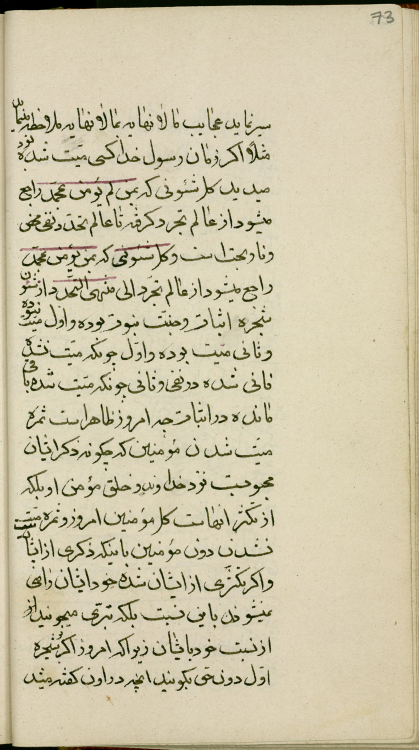 73
سیر نماید عجایب ما لا نهایه بما لا نهایه ملاحظه مینماید
مثلا اگر زمان رسول خدا کسی میت شده بود
میدید کل شئونی که بمن لم یؤمن بمحمد راجع
میشود از عالم تجرد گرفته تا عالم تحدد در نفی محض
و نار بحت است و کل شئونی که بمن یؤمن بمحمد
راجع میشود از عالم تجرد الی منتهی التحدد از شئون
شجره اثبات و جنت نبوت بوده و اول میت نبوده
و ثانی میت بوده و اول چونکه میت نشده
فانی شده در نفی و ثانی چونکه میت شده باقی
مانده در اثبات چه امروز ظاهر است ثمره
میت شدن مؤمنین که چگونه ذکر ایشان
محبوبست نزد خداوند و خلق مؤمن او بلکه
از تکبر انهاست کل مؤمنین امروز و ثمره میت
نشدن دون مؤمنین باینکه ذکری از ایشان نیست
و اگر تکبری از ایشان شده خود ایشان راضی
نمیشوند باین نسبت بلکه تبری میجویند از
از نسبت خود بایشان زیرا که امروز اگر بشجره
اول دون حق بگویند انچه در اون گفته میشد